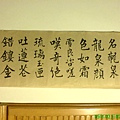 名龍泉
龍泉顏
色如霜
雪良工咨嗟
嘆奇絕
琉璃玉匣
吐蓮花
錯鏤金